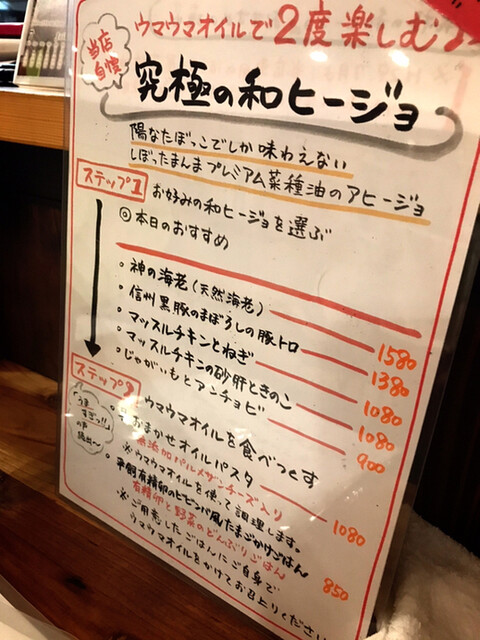 当店自慢
ウマウマオイルで2度楽しむ
究極の和ヒージョ
陽なたぼっこでしか味わえない
しぼったまんまプレミアム菜種油のアヒージョ
ステップ1 お好みの和ヒージョを選ぶ
◎本日のおすすめ
・神の海老(天然海老) 1580
・信州黒豚のまぼろしの豚トロ 1380
・マッスルチキンとねぎ 1080
・マッスルチキンの砂肝ときのこ 1080
・じゃがいもとアンチョビ 900
ステップ2 ウマウマオイルを食べつくす
「うますぎっ!!」の声続出〜
おまかせオイルパスタ 1080
無添加パルメザンチーズ入り
※ウマウマオイルを使って調理します。
・平飼有精卵のビビンバ風たまごかけごはん 850
有精卵と野菜のどんぶりごはん
※ご用意したごはんにご自身で
ウマウマオイルをかけてお召上りください